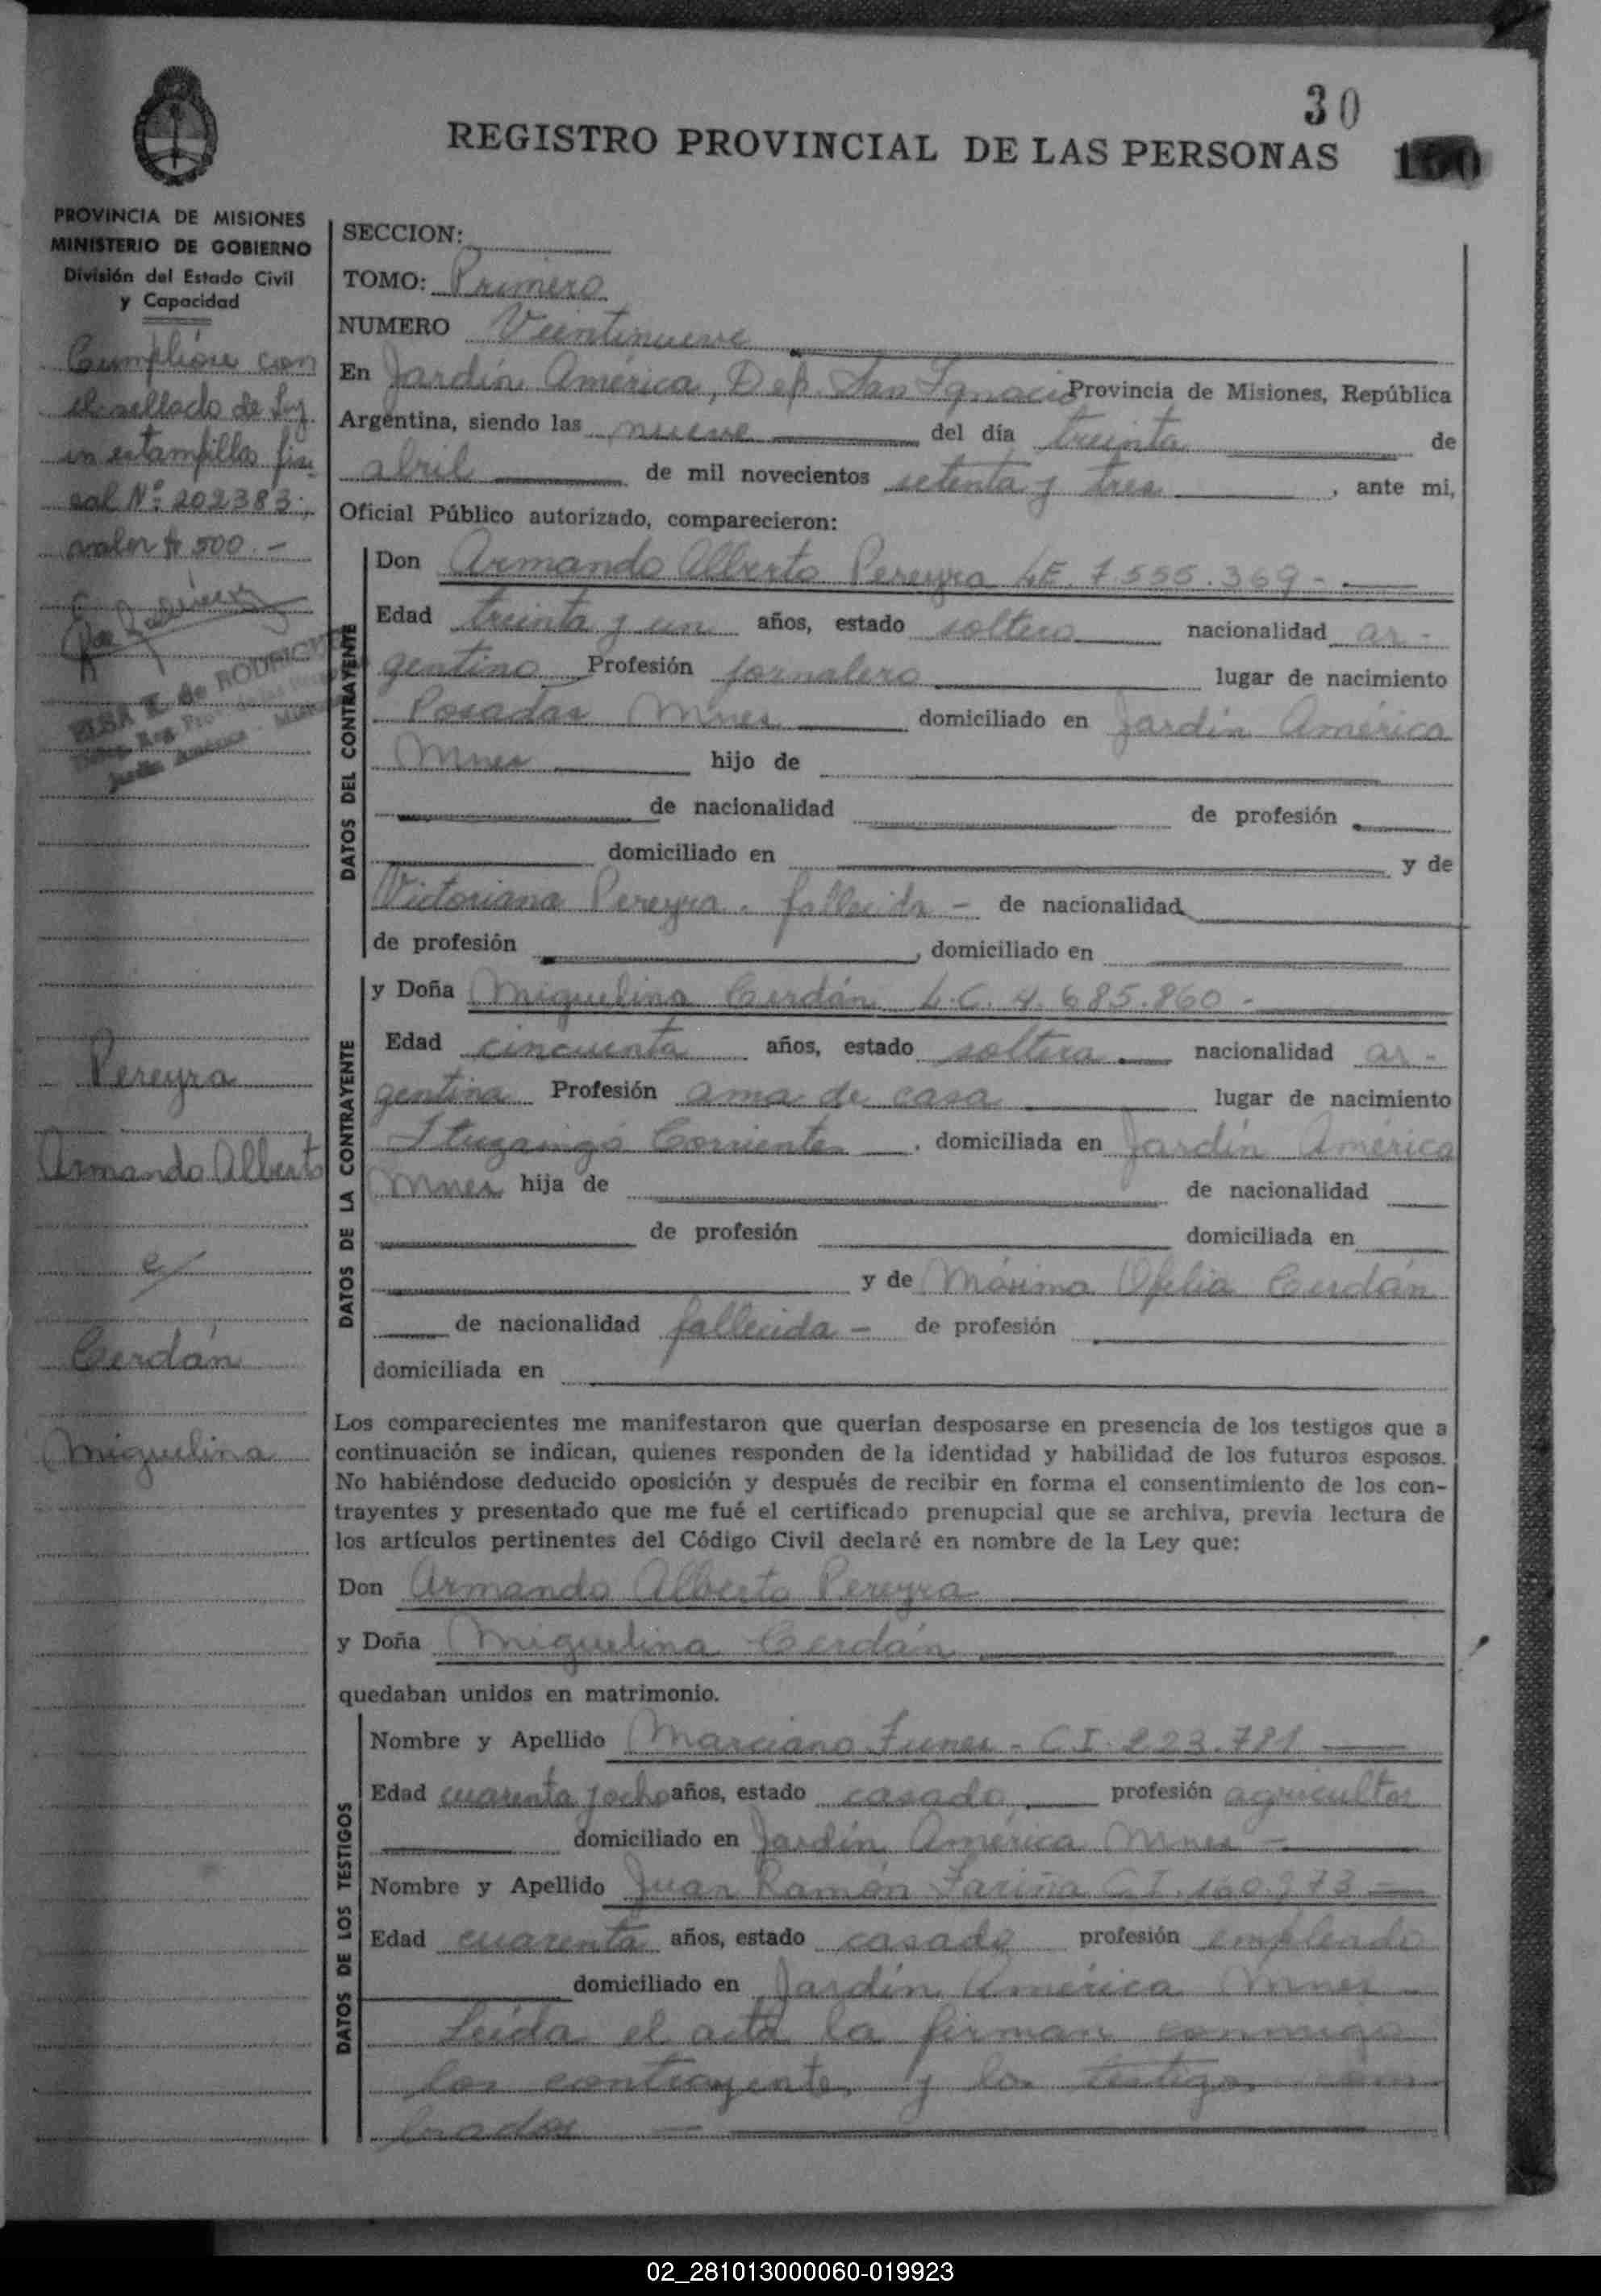 30
REGISTRO PROVINCIAL DE LAS PERSONAS
PROVINCIA DE MISIONES
MINISTERIO DE GOBIERNO
División del Estado Civil
y Capacidad
Cumplióse con
el sellado de Ley
en estampilla fis-
cal Nº 202383,
valor $ 500.-
ELBA E. de RODRIGUEZ
Jardín América - Misiones
Pereyra
Armando Alberto
c/
Cerdán
Miguelina
SECCION:
TOMO: Primero
NUMERO Veintinueve
En Jardín América, Dep. San Ignacio Provincia de Misiones, República
Argentina, siendo las nueve del día treinta de
abril de mil novecientos setenta y tres, ante mi,
Oficial Público autorizado, comparecieron:
DATOS DEL CONTRAYENTE
Don Armando Alberto Pereyra L.E. 7.555.369.-
Edad treinta y un años, estado soltero nacionalidad ar-
gentino Profesión jornalero lugar de nacimiento
Posadas Mnes domiciliado en Jardín América
Mnes hijo de
de nacionalidad de profesión
domiciliado en y de
Victoriana Pereyra - fallecida - de nacionalidad
de profesión , domiciliado en
DATOS DE LA CONTRAYENTE
y Doña Miguelina Cerdán L.C. 4.685.860 -
Edad cincuenta años, estado soltera nacionalidad ar-
gentina Profesión ama de casa lugar de nacimiento
Ituzaingó Corrientes , domiciliada en Jardín América
Mnes hija de de nacionalidad
de profesión domiciliada en
y de Máxima Ofelia Cerdán
de nacionalidad fallecida - de profesión
domiciliada en
Los comparecientes me manifestaron que querían desposarse en presencia de los testigos que a
continuación se indican, quienes responden de la identidad y habilidad de los futuros esposos.
No habiéndose deducido oposición y después de recibir en forma el consentimiento de los con-
trayentes y presentado que me fué el certificado prenupcial que se archiva, previa lectura de
los artículos pertinentes del Código Civil declaré en nombre de la Ley que:
Don Armando Alberto Pereyra
y Doña Miguelina Cerdán
quedaban unidos en matrimonio.
DATOS DE LOS TESTIGOS
Nombre y Apellido Marciano Funes - C.I. 223.781
Edad cuarenta y ocho años, estado casado profesión agricultor
domiciliado en Jardín América Mnes -
Nombre y Apellido Juan Ramón Fariña C.I. 160.373
Edad cuarenta años, estado casado profesión empleado
domiciliado en Jardín América Mnes -
Leída el acta la firman conmigo
los contrayentes y los testigos nom
brados
02_281013000060-019923